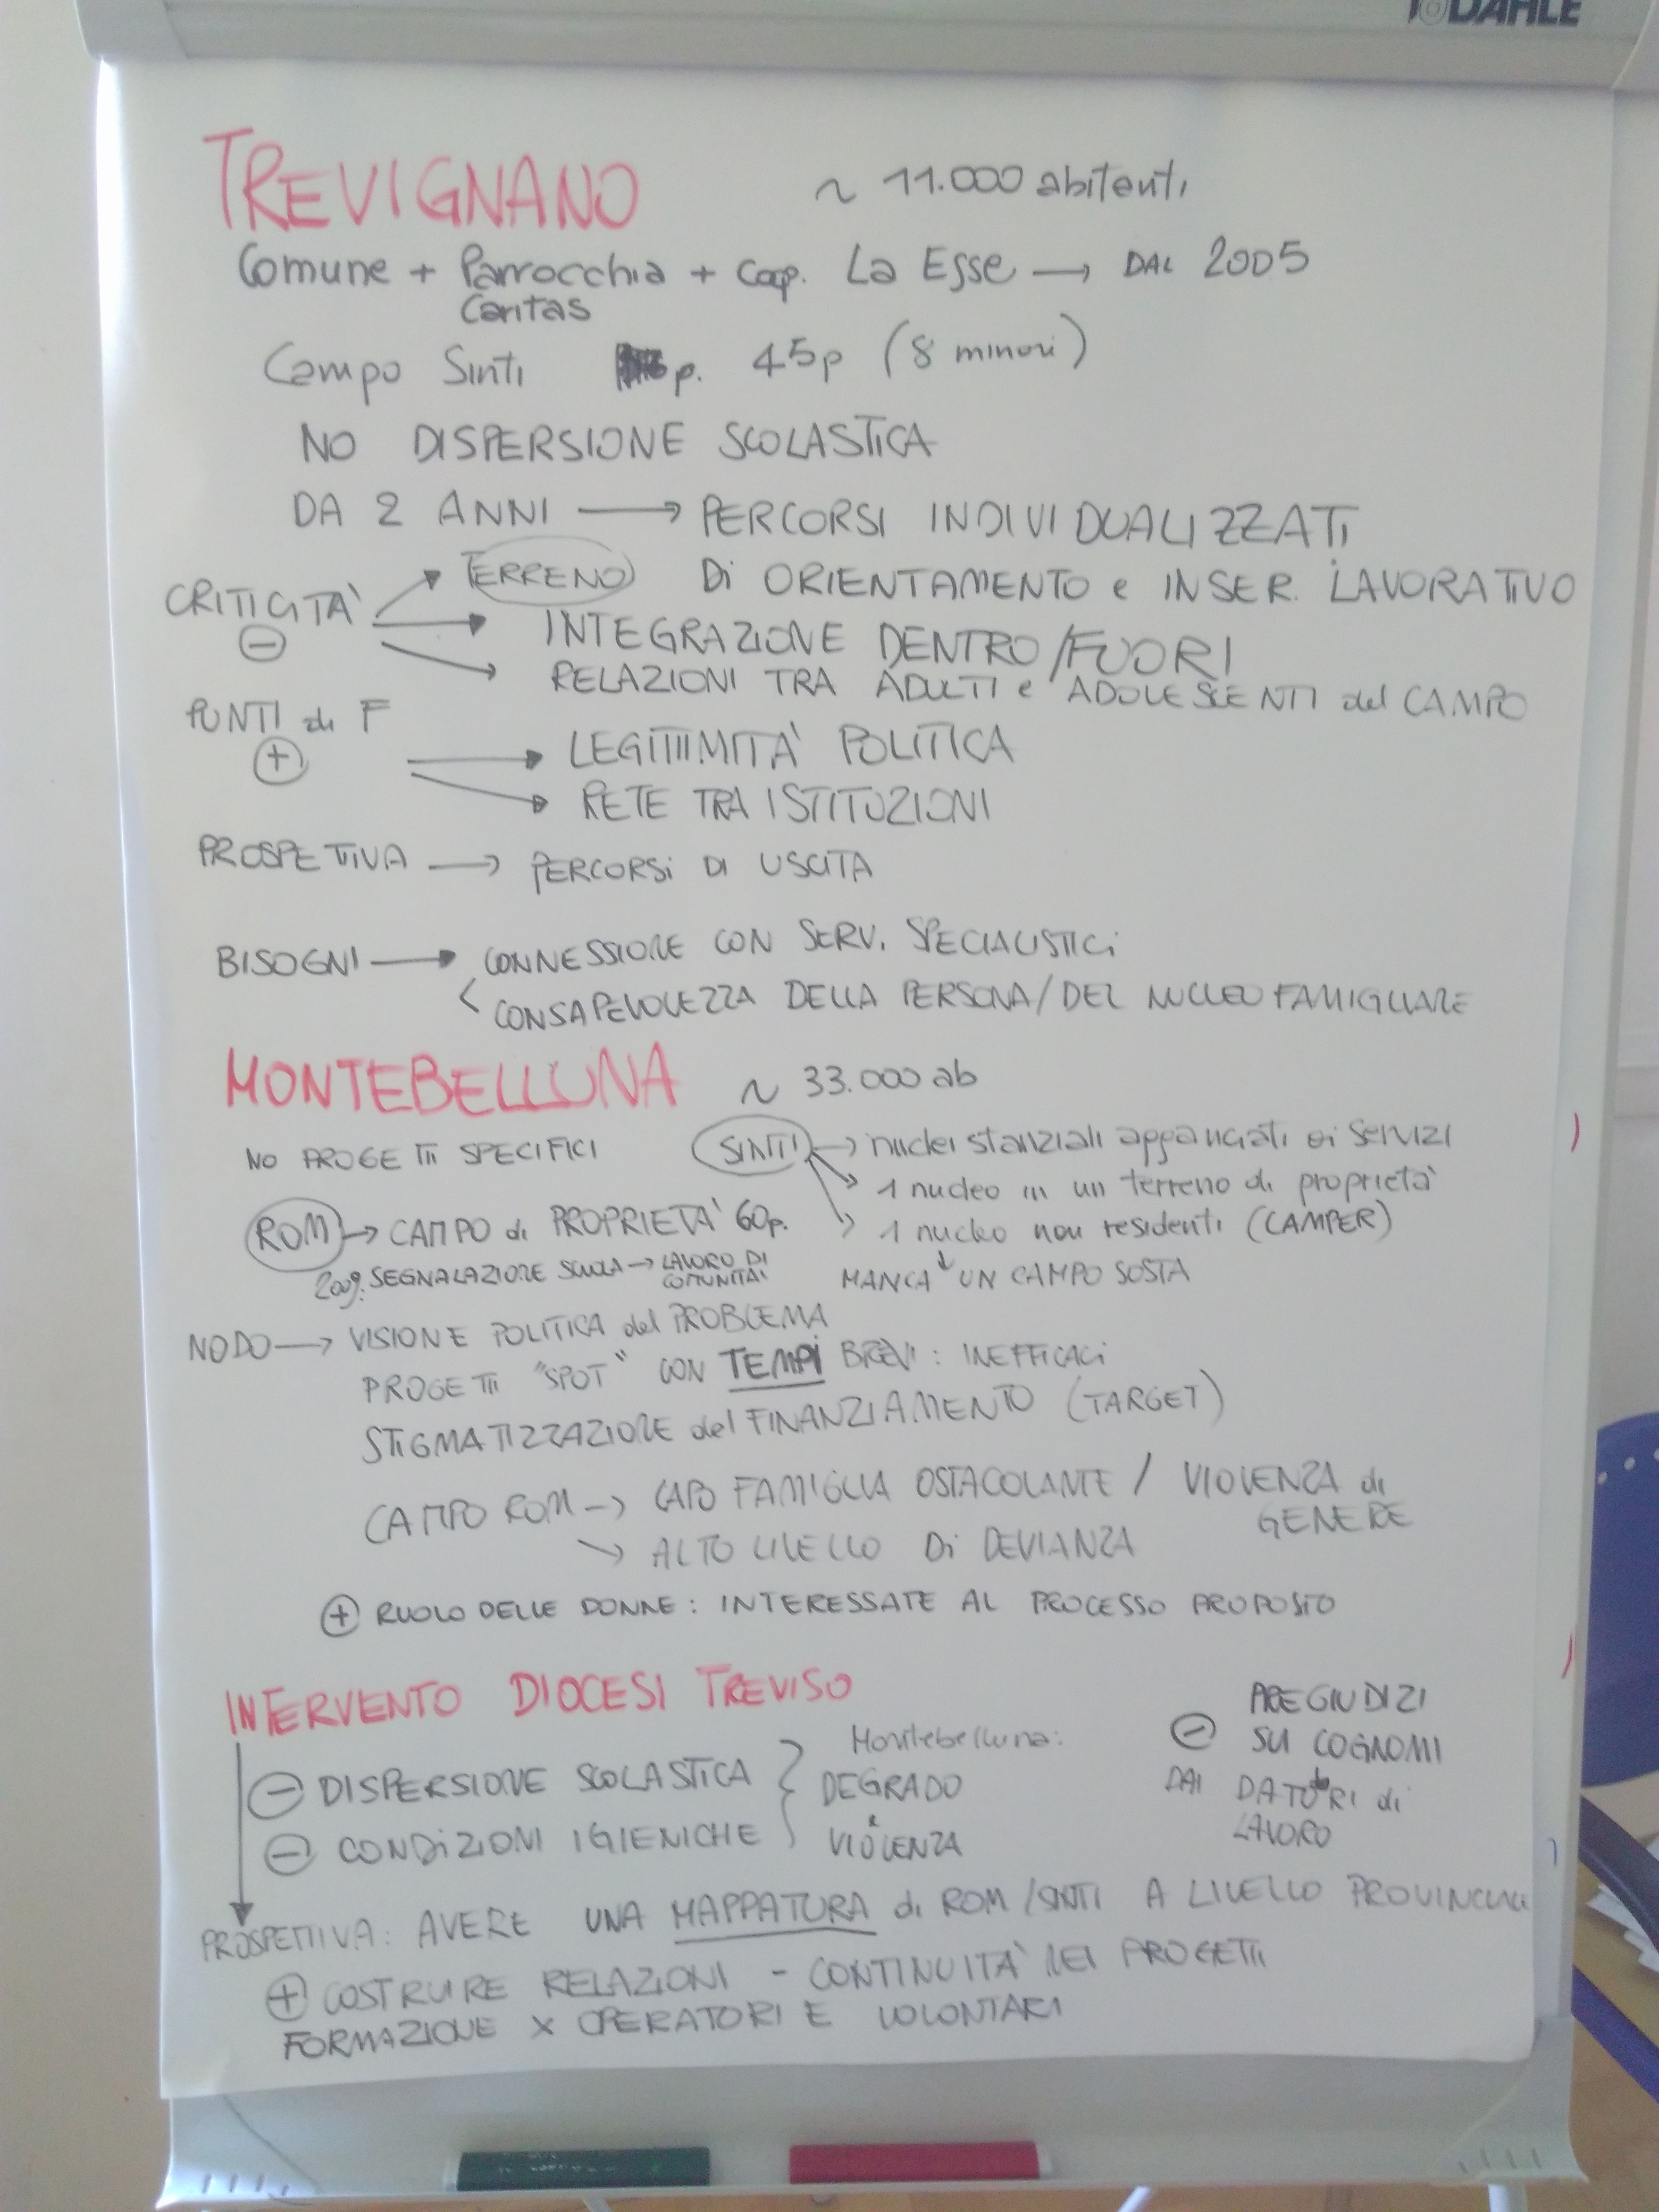 DAHLE
TREVIGNANO ~ 11.000 abitanti
Comune + Parrocchia + Coop. La Esse → DAL 2005
Caritas
Campo Sinti p. 45p (8 minori)
NO DISPERSIONE SCOLASTICA
DA 2 ANNI → PERCORSI INDIVIDUALIZZATI
DI ORIENTAMENTO e INSER. LAVORATIVO
CRITICITÀ → TERRENO
⊖ → INTEGRAZIONE DENTRO/FUORI
→ RELAZIONI TRA ADULTI e ADOLESCENTI del CAMPO
PUNTI di F
⊕ → LEGITTIMITA' POLITICA
→ RETE TRA ISTITUZIONI
PROSPETTIVA → PERCORSI DI USCITA
BISOGNI → CONNESSIONE CON SERV. SPECIALISTICI
< CONSAPEVOLEZZA DELLA PERSONA/DEL NUCLEO FAMIGLIARE
MONTEBELLUNA ~ 33.000 ab
NO PROGETTI SPECIFICI
SINTI → nuclei stanziali agganciati ai SERVIZI
→ 1 nucleo in un terreno di proprietà
→ 1 nucleo non residenti (CAMPER)
↓
MANCA UN CAMPO SOSTA
ROM → CAMPO di PROPRIETA' 60p.
2009: SEGNALAZIONE SCUOLA → LAVORO DI
COMUNITA'
NODO → VISIONE POLITICA del PROBLEMA
PROGETTI "SPOT" CON TEMPI BREVI: INEFFICACI
STIGMATIZZAZIONE del FINANZIAMENTO (TARGET)
CAMPO ROM → CAPO FAMIGLIA OSTACOLANTE / VIOLENZA di
GENERE
→ ALTO LIVELLO DI DEVIANZA
⊕ RUOLO DELLE DONNE: INTERESSATE AL PROCESSO PROPOSTO
INTERVENTO DIOCESI TREVISO
⊖ DISPERSIONE SCOLASTICA
⊖ CONDIZIONI IGIENICHE
Montebelluna:
DEGRADO
e
VIOLENZA
⊖ PREGIUDIZI
SU COGNOMI
DAI DATORI di
LAVORO
PROSPETTIVA: AVERE UNA MAPPATURA di ROM/SINTI A LIVELLO PROVINCIALE
⊕ COSTRUIRE RELAZIONI - CONTINUITA' NEI PROGETTI
FORMAZIONE X OPERATORI E VOLONTARI